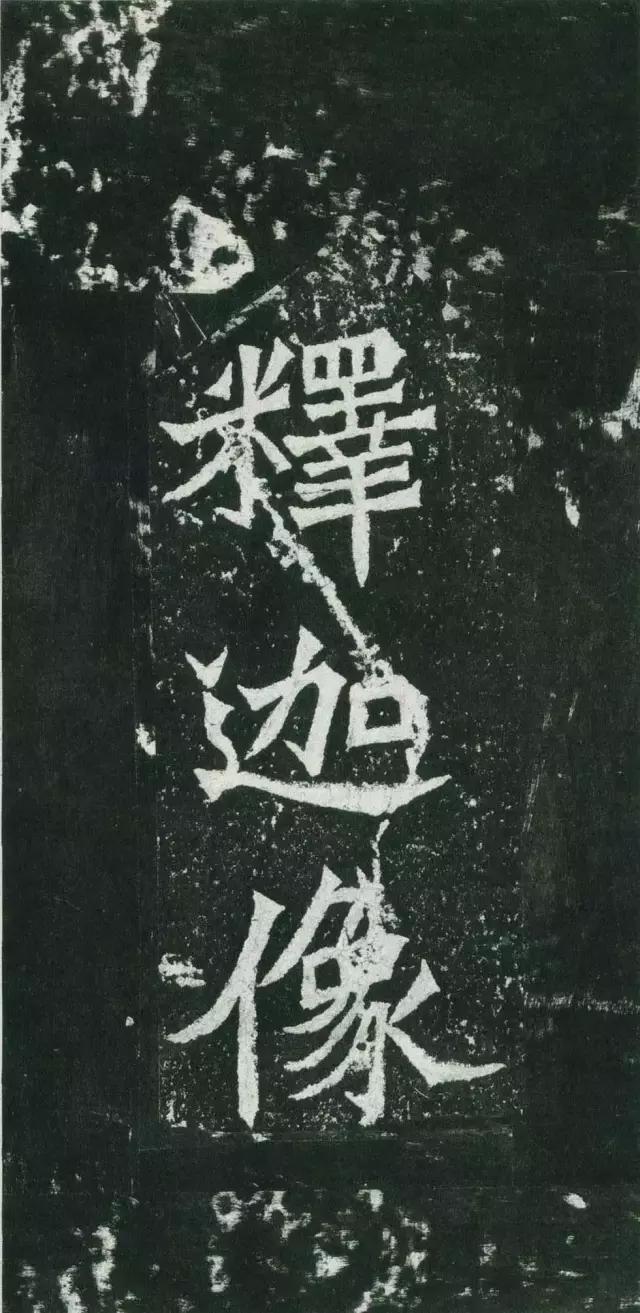 釋迦像